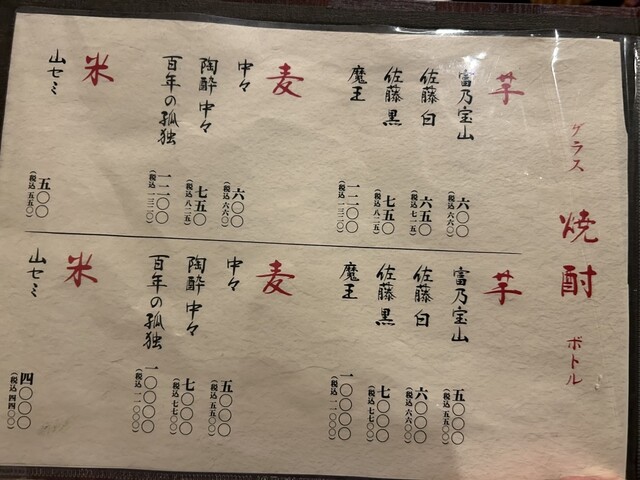 焼酎
グラス
芋
富乃宝山
六〇〇
(税込 六六〇)
佐藤 白
六五〇
(税込 七一五)
佐藤 黒
七五〇
(税込 八二五)
魔王
一二〇〇
(税込 一三二〇)
麦
中々
六〇〇
(税込 六六〇)
陶酔 中々
七五〇
(税込 八二五)
百年の孤独
一二〇〇
(税込 一三二〇)
米
山セミ
五〇〇
(税込 五五〇)
ボトル
芋
富乃宝山
五〇〇〇
(税込 五五〇〇)
佐藤 白
六〇〇〇
(税込 六六〇〇)
佐藤 黒
七〇〇〇
(税込 七七〇〇)
魔王
一〇〇〇〇
(税込 一一〇〇〇)
麦
中々
五〇〇〇
(税込 五五〇〇)
陶酔 中々
七〇〇〇
(税込 七七〇〇)
百年の孤独
一〇〇〇〇
(税込 一一〇〇〇)
米
山セミ
四〇〇〇
(税込 四四〇〇)